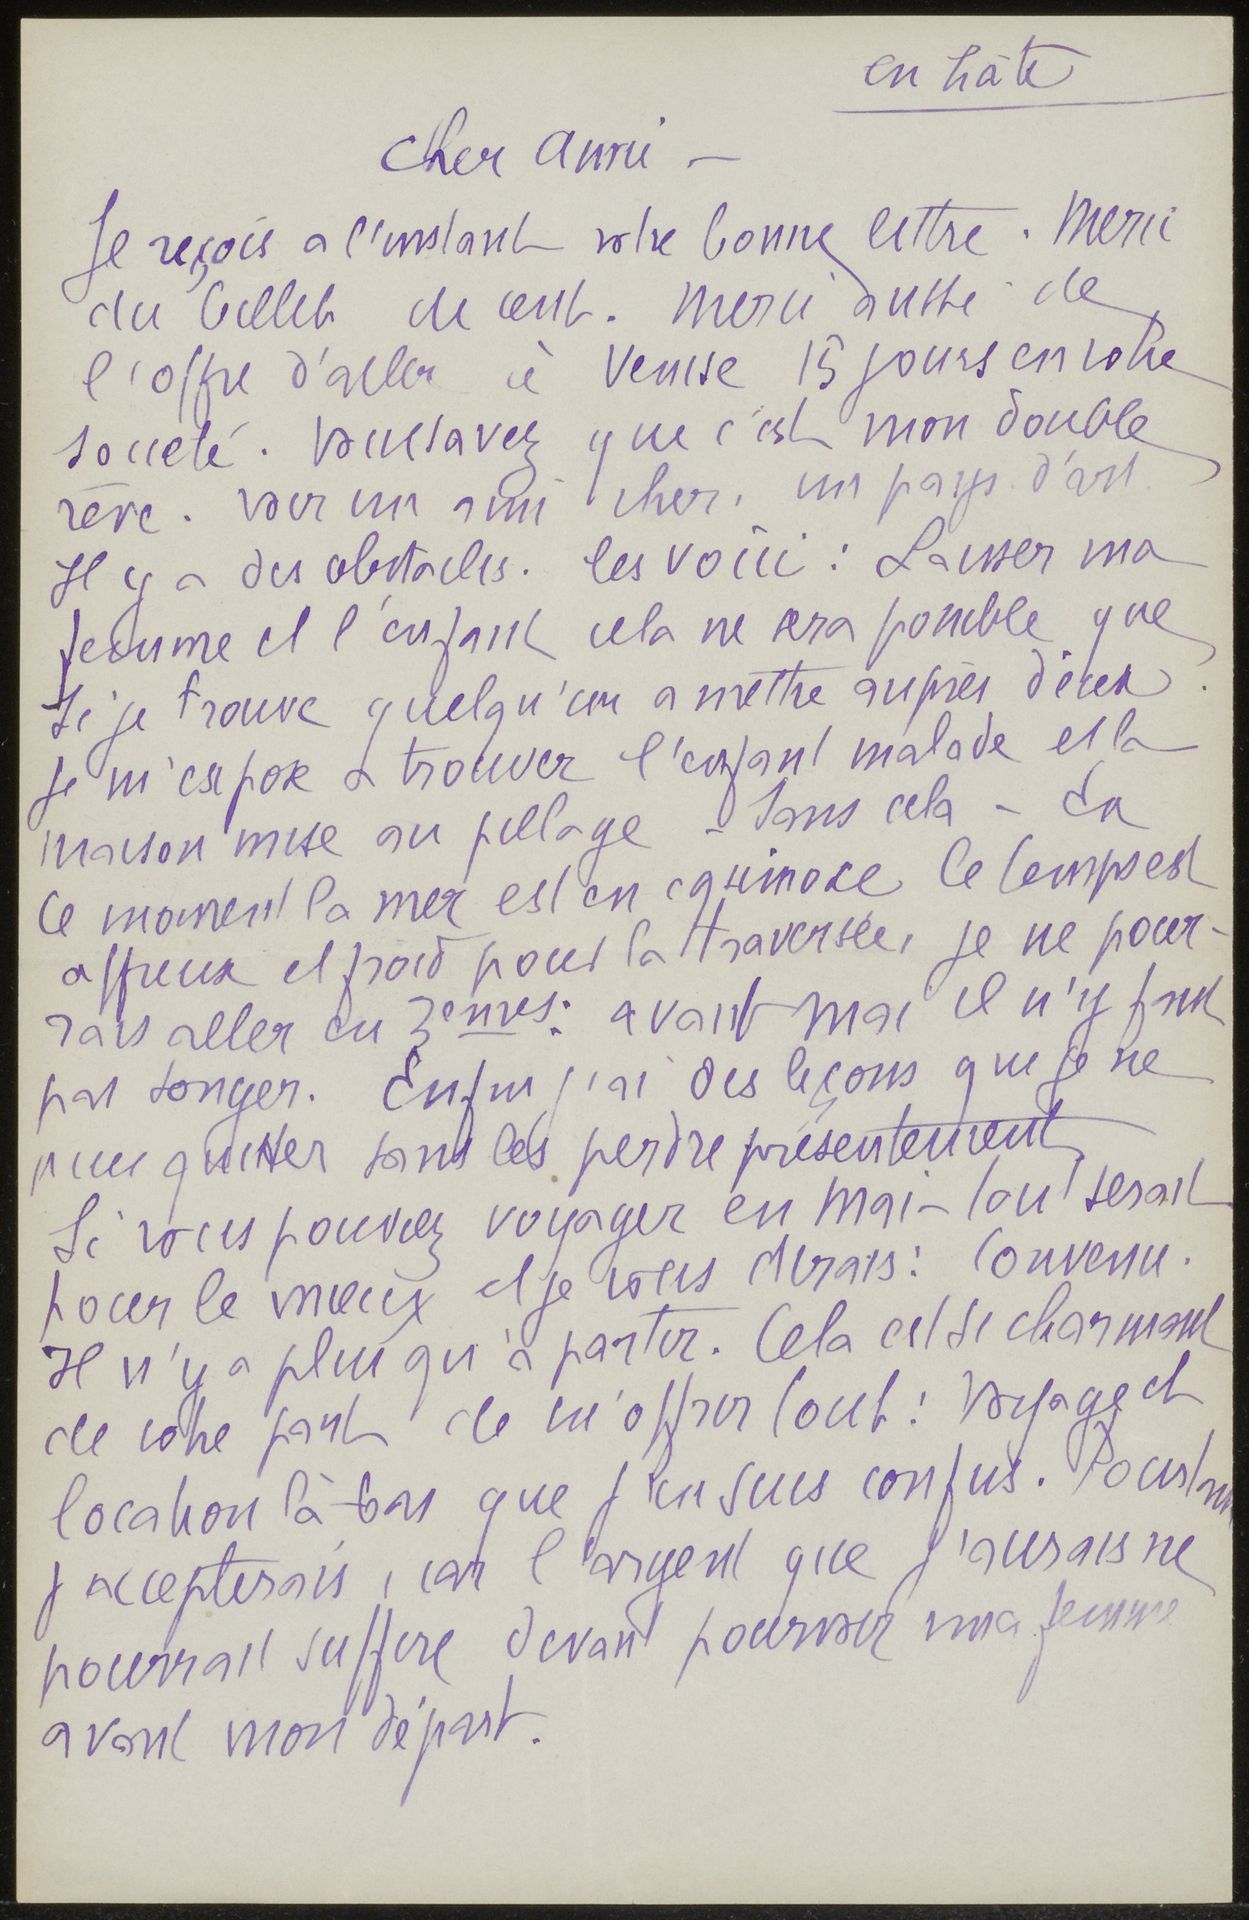 en hâte
Cher Ami —
Je reçois a l'instant votre bonne lettre. Merci
du billet de cent. Merci aussi de
l'offre d'aller à Venise 15 jours en votre
société. Vous savez que c'est mon double
rêve. Voir un ami cher, un pays d'art.
Il y a des obstacles. les voici : Laisser ma
femme et l'enfant cela ne sera possible que
si je trouve quelqu'un a mettre auprès d'eux.
Je m'expose a trouver l'enfant malade et la
maison mise au pillage – sans cela – En
ce moment la mer est en equinoxe le temps est
affreux et froid pour la traversée, je ne pour-
rais aller en 3emes: avant mai il n'y faut
pas songer. Enfin j'ai des leçons que je ne
puis quitter sans les perdre présentement
Si vous pouviez voyager en Mai – tout serait
pour le mieux et je vous dirais : Convenu.
Il n'y a plus qu'à partir. Cela est si charmant
de votre part de m'offrir tout : Voyage et
location là-bas que j'en suis confus. Pourtant
j'accepterais, car l'argent que j'aurais ne
pourrait suffire devant pourvoir ma femme
avant mon départ.